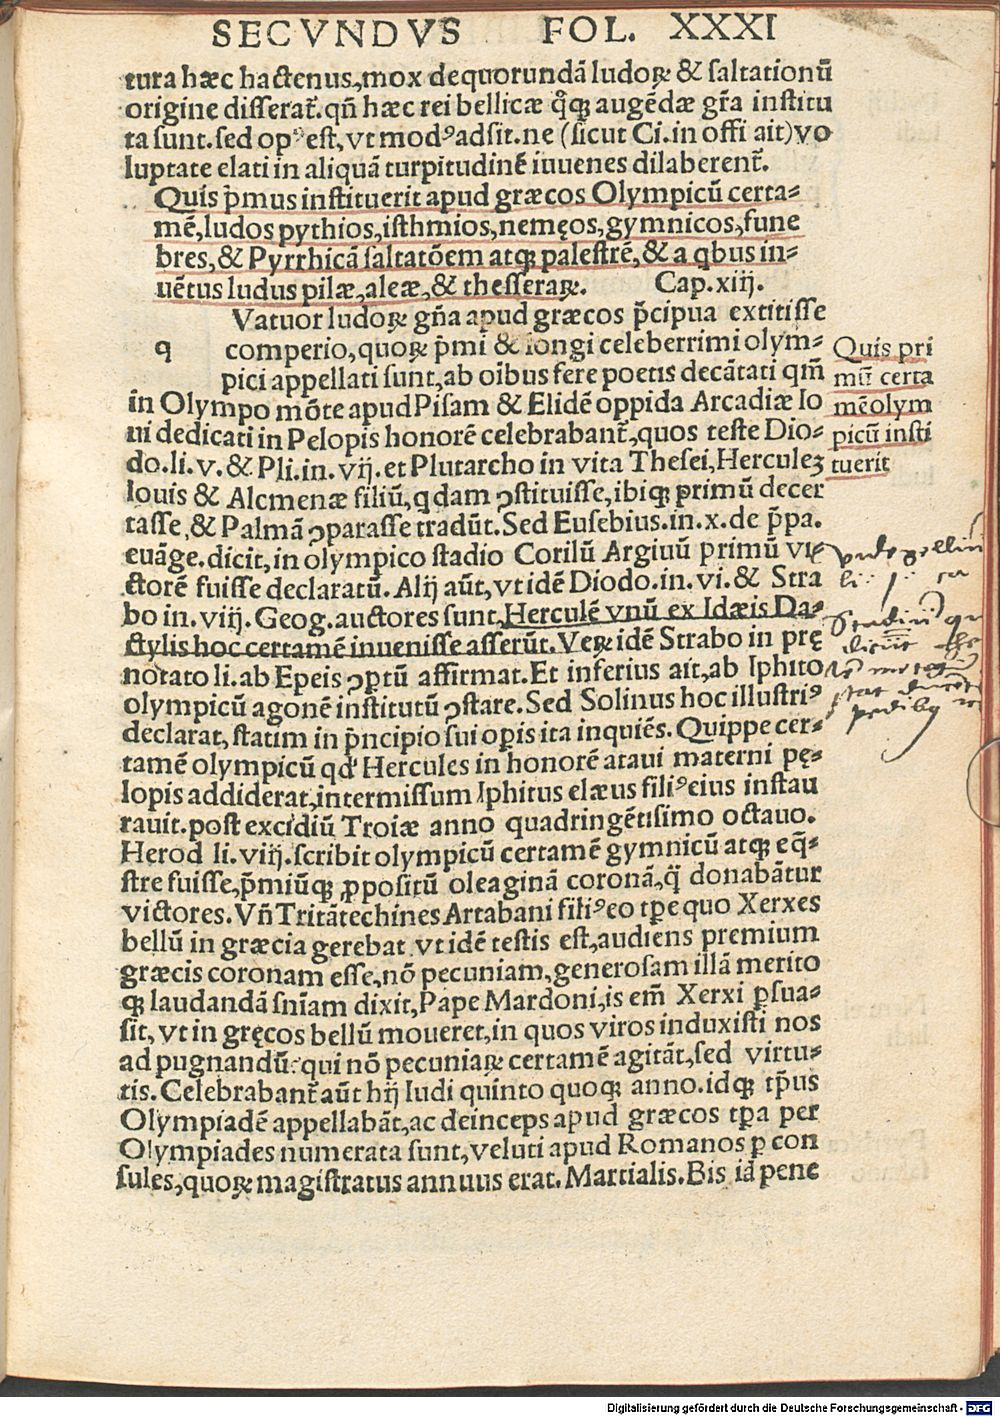 SECVNDVS FOL. XXXI
tura hæc hactenus, mox de quorundã ludoꝝ & saltationũ
origine disserat᷑. qñ hæc rei bellicæ q̃qꝫ augẽdæ gr̃a institu
ta sunt. sed opꝰ est, vt modꝰ adsit. ne (sicut Ci. in offi ait) vo
luptate elati in aliquã turpitudinẽ iuuenes dilaberent᷑.
Quis p̃mus instituerit apud græcos Olympicũ certa-
mẽ, ludos pythios, isthmios, nemęos, gymnicos, fune
bres, & Pyrrhicã saltatõem atqꝫ palestrẽ, & a qbus in-
uẽtus ludus pilæ, aleæ, & thesseraꝝ. Cap. xiij.
Vatuor ludoꝝ gñа apud græcos p̃cipua extitisse
q comperio, quoꝝ p̃mi & longi celeberrimi olym-
pici appellati sunt, ab oĩbus fere poetis decãtati qm̃
in Olympo mõte apud Pisam & Elidẽ oppida Arcadiæ Io
ui dedicati in Pelopis honorẽ celebrabant᷑, quos teste Dio-
do. li. v. & Pli. in. vij. et Plutarcho in vita Thesei, Herculeꝫ
Iouis & Alcmenæ filiũ, qdam ꝯstituisse, ibiqꝫ primũ decer
tasse, & Palmã ꝯparasse tradũt. Sed Eusebius. in. x. de p̃pa.
euãge. dicit, in olympico stadio Corilũ Argiuũ primũ vi-
ctorẽ fuisse declaratũ. Alij aũt, vt idẽ Diodo. in. vi. & Stra
bo in. viij. Geog. auctores sunt, Herculẽ vnũ ex Idæis Da-
ctylis hoc certamẽ inuenisse asserũt. Veꝝ idẽ Strabo in prę
notato li. ab Epeis ꝯptũ affirmat. Et inferius ait, ab Iphito
olympicũ agonẽ institutũ ꝯstare. Sed Solinus hoc illustriꝰ
declarat, statim in p̃ncipio sui oꝑis ita inquiẽs. Quippe cer-
tamẽ olympicũ qd' Hercules in honorẽ ataui materni pę-
lopis addiderat, intermissum Iphitus elæus filiꝰ eius instau
rauit. post excidiũ Troiæ anno quadringẽtisimo octauo.
Herod li. viij. scribit olympicũ certamẽ gymnicũ atqꝫ eq̃-
stre fuisse, p̃miũqꝫ ꝓpositũ oleaginã coronã, q̃ donabãtur
victores. Vñ Tritãtechines Artabani filiꝰ eo tꝑe quo Xerxes
bellũ in græcia gerebat vt idẽ testis est, audiens premium
græcis coronam esse, nõ pecuniam, generosam illã merito
qꝫ laudandã sñiam dixit, Pape Mardoni, is em̃ Xerxi ꝑsua-
sit, vt in gręcos bellũ moueret, in quos viros induxisti nos
ad pugnandũ: qui nõ pecuniaꝝ certamẽ agitãt, sed virtu-
tis. Celebrabant᷑ aũt hij ludi quinto quoqꝫ anno. idqꝫ tp̃us
Olympiadẽ appellabãt, ac deinceps apud græcos tꝑa per
Olympiades numerata sunt, veluti apud Romanos ꝑ con
sules, quoꝝ magistratus annuus erat. Martialis. Bis iã pene
Quis pri
mũ certa
mẽ olym
picũ insti
tuerit
Digitalisierung gefördert durch die Deutsche Forschungsgemeinschaft - DFG